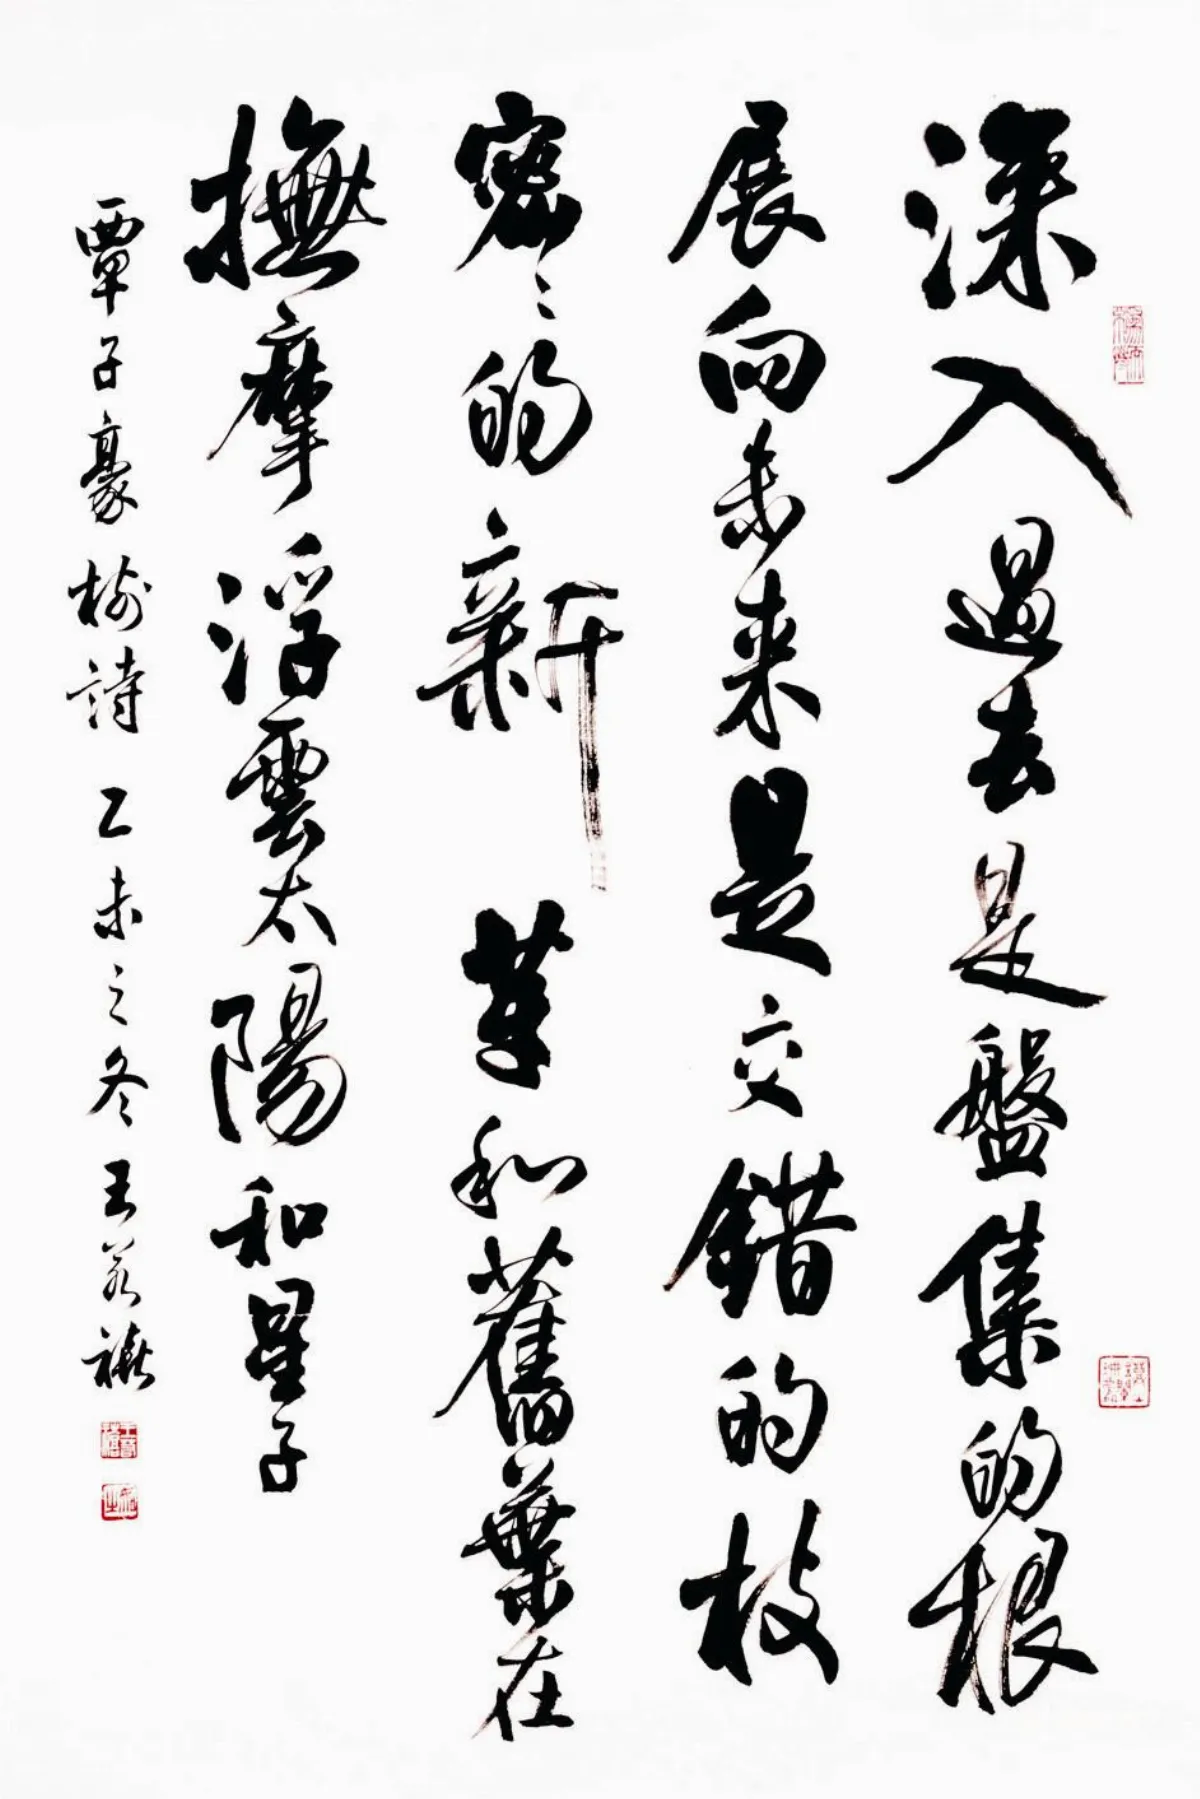 深入過去是盤集的根
展向未來是交錯的枝
密々的新芽和舊葉在
撫摩浮雲太陽和星子
覃子豪樹詩 乙未之冬 王若